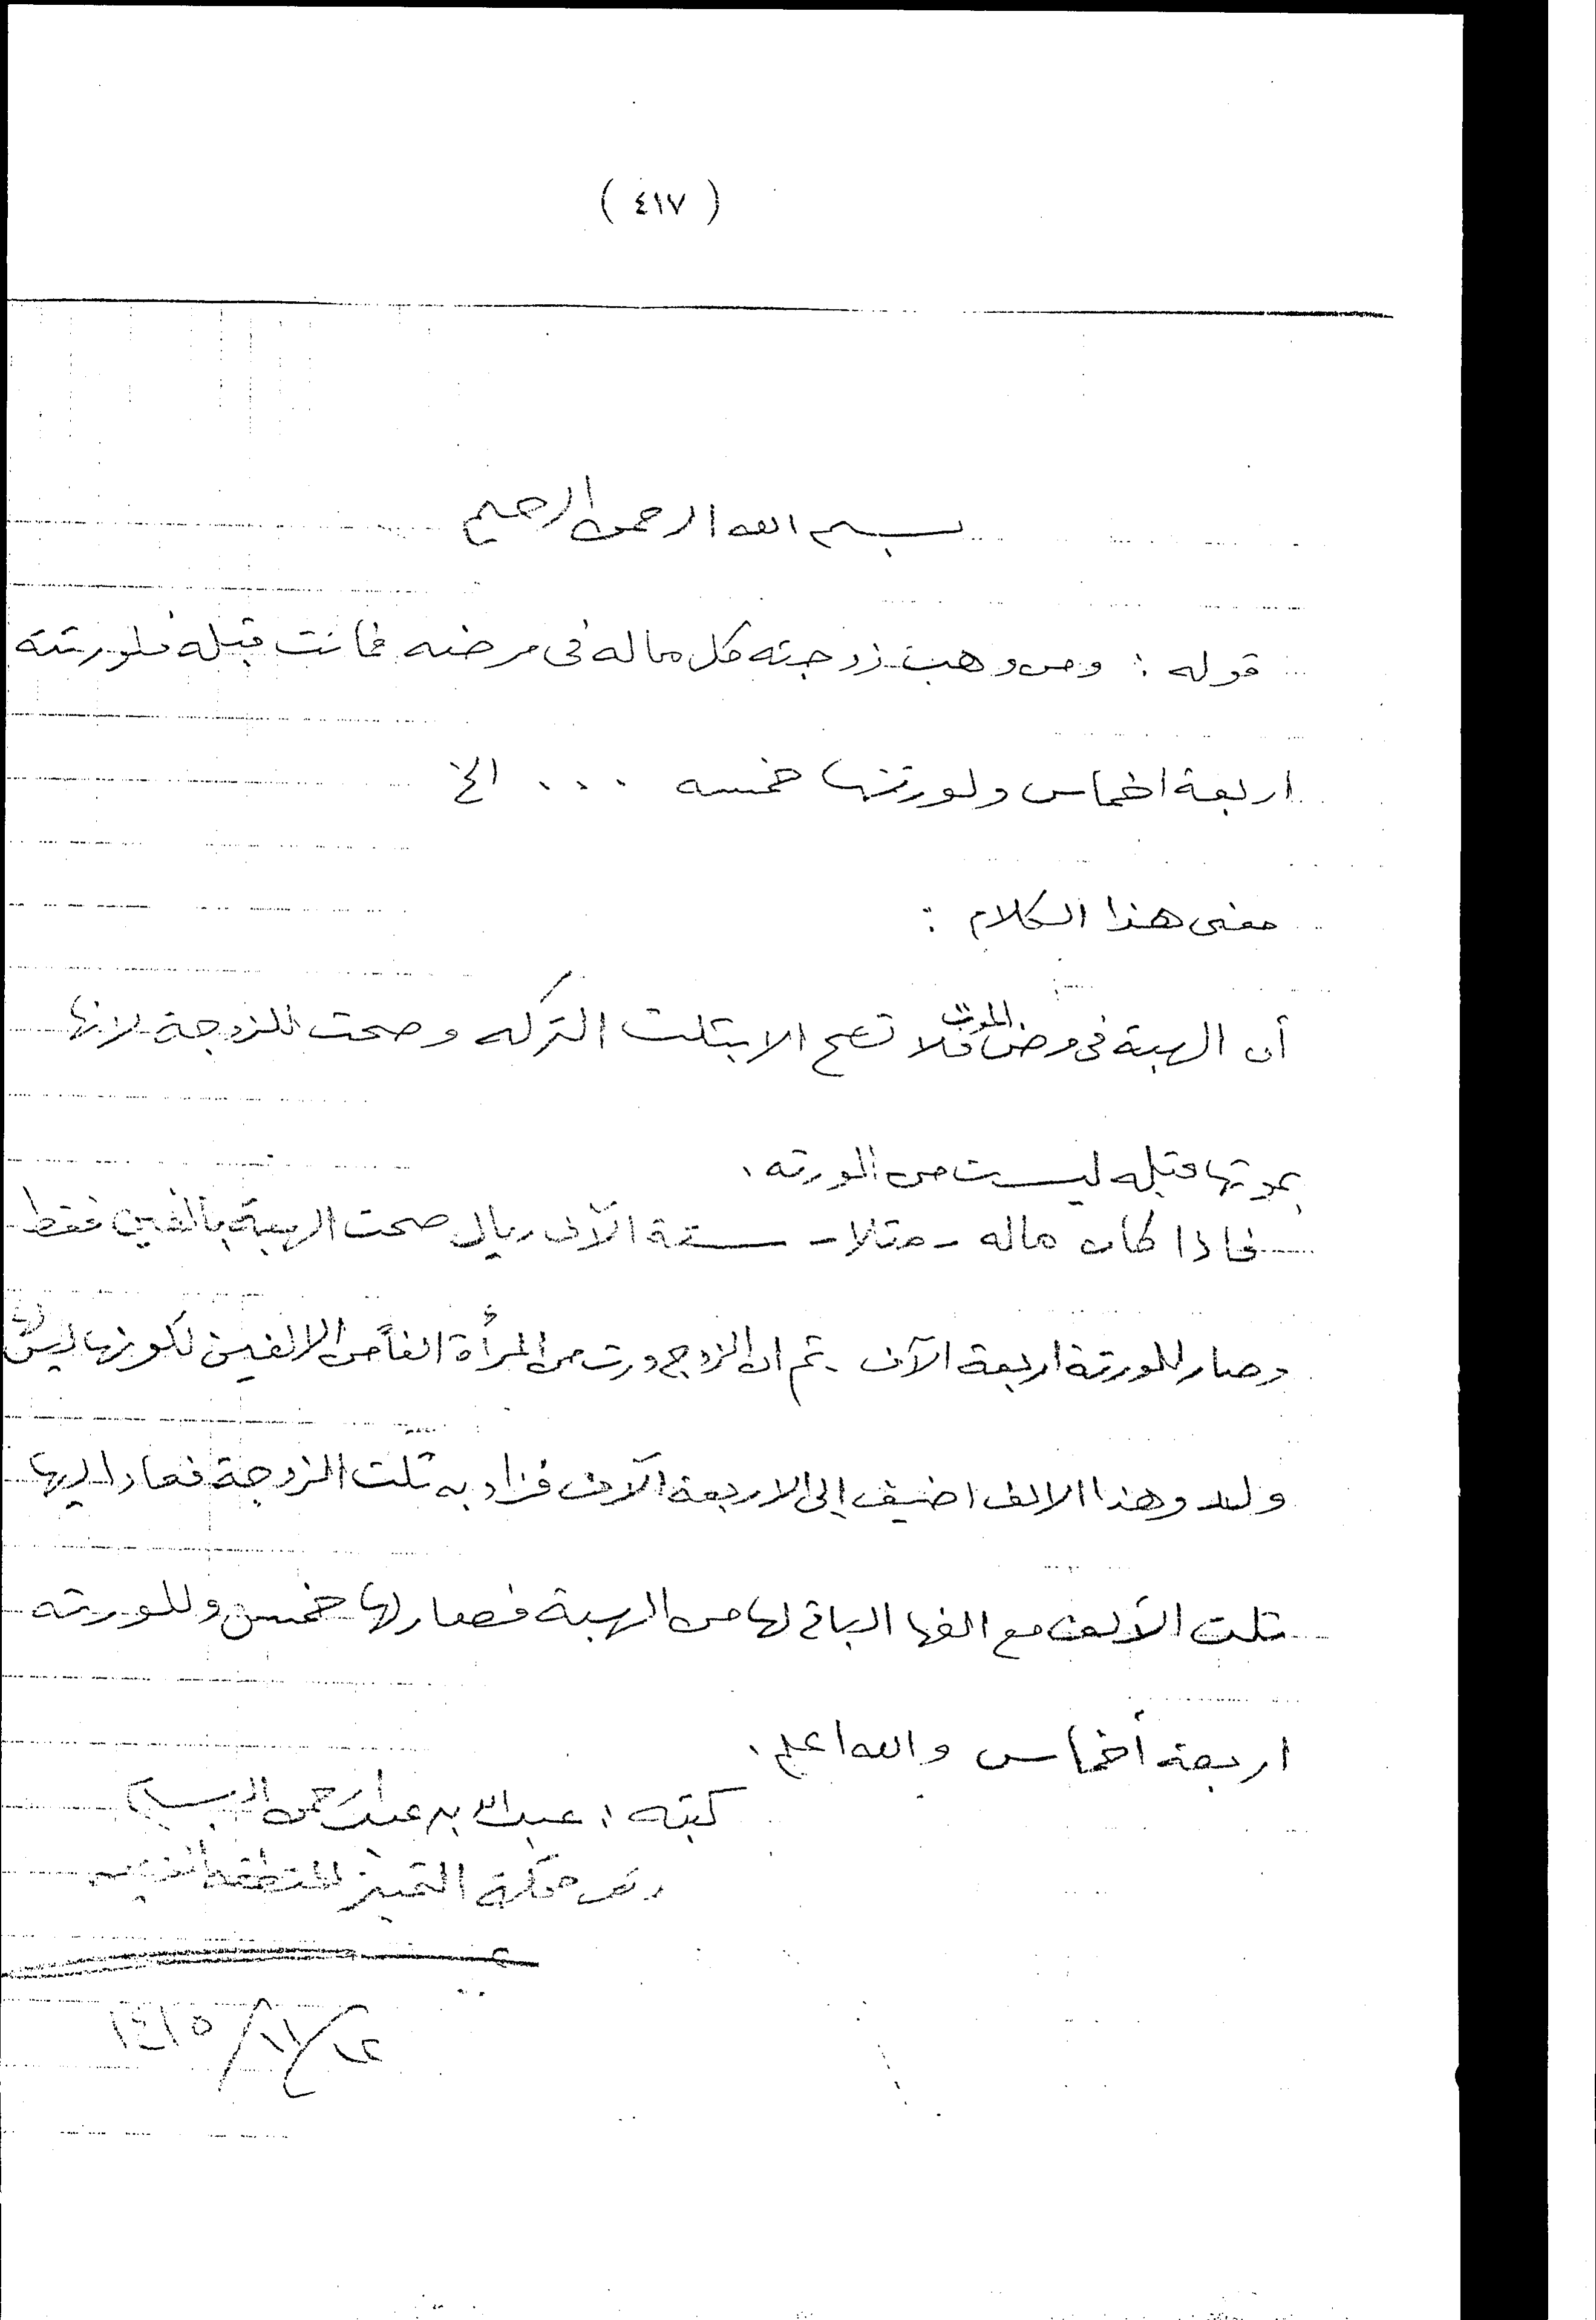 ( ٤١٧ )
بسم الله الرحمن الرحيم
قوله : ومن وهب زوجته كل ماله فى مرضه فماتت قبله فلورثته
اربعة اخماس ولورثتها خمسه ... الخ
معنى هذا الكلام :
أن الهبة فى مرض الموت فلا تصح الا بثلث التركه وصحت للزوجة لانها
بموتها قبله ليست من الورثه .
فاذا كان ماله - مثلا - ستة الآف ريال صحت الهبة بالفين فقط
وصار للورثة اربعة الآف . ثم ان الزوج ورث من المرأة الفاً من الالفين لكونها ليس لها
ولد وهذا الالف اضيف إلى الاربعة الآف فزاد به ثلث الزوجة فعاد اليها
ثلث الألف مع الفها الباقي لها من الهبة فصار لها خمس وللورثه
اربعة أخماس والله اعلم .
كتبه : عبدالله بن عبدالرحمن البسام
محكمة التميز للمنطقة الغربيه
١٢/١١/١٤١٥